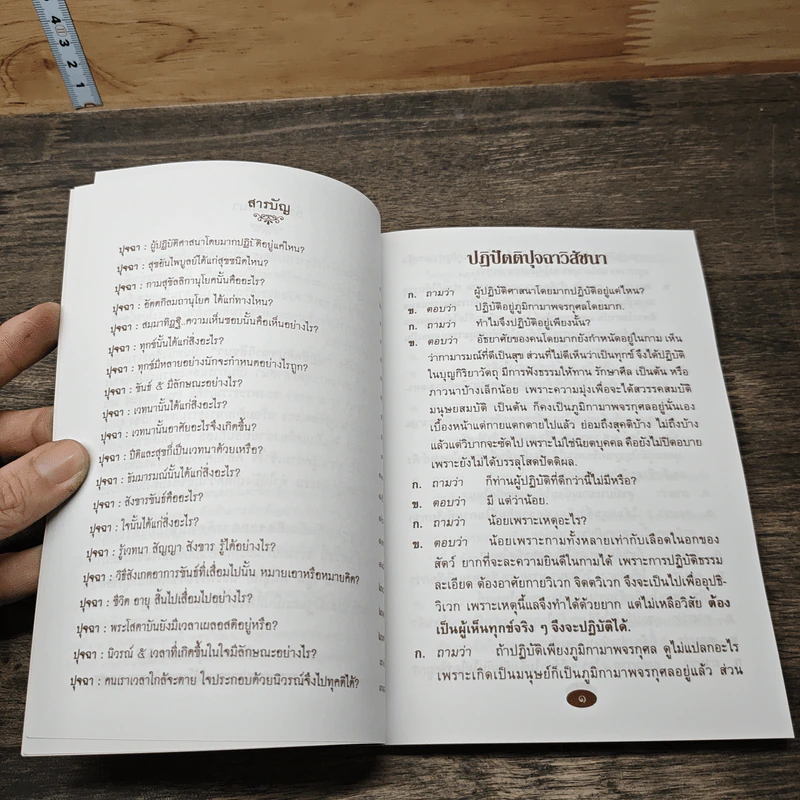 4 3 2 1
สารบัญ
ปุจฉา : ผู้ปฏิบัติศาสนาโดยมากปฏิบัติอยู่แค่ไหน?
ปุจฉา : สุขอันไพบูลย์ได้แก่สุขชนิดไหน?
ปุจฉา : กามสุขัลลิกานุโยคนั้นคืออะไร?
ปุจฉา : อัตตกิลมถานุโยค ได้แก่ทางไหน?
ปุจฉา : สมฺมาทิฏฺฐิ..ความเห็นชอบนั้นคือเห็นอย่างไร?
ปุจฉา : ทุกข์นั้นได้แก่สิ่งอะไร?
ปุจฉา : ทุกข์มีหลายอย่างนักจะกำหนดอย่างไรถูก?
ปุจฉา : ขันธ์ ๕ มีลักษณะอย่างไร?
ปุจฉา : เวทนานั้นได้แก่สิ่งอะไร?
ปุจฉา : เวทนานั้นอาศัยอะไรจึงเกิดขึ้น?
ปุจฉา : ปีติและสุขก็เป็นเวทนาด้วยหรือ?
ปุจฉา : ธัมมารมณ์นั้นได้แก่สิ่งอะไร?
ปุจฉา : สังขารขันธ์คืออะไร?
ปุจฉา : ใจนั้นได้แก่สิ่งอะไร?
ปุจฉา : รู้เวทนา สัญญา สังขาร รู้ได้อย่างไร?
ปุจฉา : วิธีสังเกตอาการขันธ์ที่เสื่อมไปนั้น หมายเอาหรือหมายคิด?
ปุจฉา : ชีวิต อายุ สิ้นไปเสื่อมไปอย่างไร?
ปุจฉา : พระโสดาบันยังมีเวลาเผลอสติอยู่หรือ?
ปุจฉา : นิวรณ์ ๕ เวลาที่เกิดขึ้นในใจมีลักษณะอย่างไร?
ปุจฉา : คนเราเวลาใกล้จะตาย ใจประกอบด้วยนิวรณ์จึงไปทุคติได้?
ปฏิปัตติปุจฉาวิสัชนา
ก. ถามว่า ผู้ปฏิบัติศาสนาโดยมากปฏิบัติอยู่แค่ไหน?
ข. ตอบว่า ปฏิบัติอยู่ภูมิกามาพจรกุศลโดยมาก.
ก. ถามว่า ทำไมจึงปฏิบัติอยู่เพียงนั้น?
ข. ตอบว่า อัธยาศัยของคนโดยมากยังกำหนัดอยู่ในกาม เห็น
ว่ากามารมณ์ที่ดีเป็นสุข ส่วนที่ไม่ดีเห็นว่าเป็นทุกข์ จึงได้ปฏิบัติ
ในบุญกิริยาวัตถุ มีการฟังธรรมให้ทาน รักษาศีล เป็นต้น หรือ
ภาวนาบ้างเล็กน้อย เพราะความมุ่งเพื่อจะได้สวรรคสมบัติ
มนุษยสมบัติ เป็นต้น ก็คงเป็นภูมิกามาพจรกุศลอยู่นั่นเอง
เบื้องหน้าแต่กายแตกตายไปแล้ว ย่อมถึงสุคติบ้าง ไม่ถึงบ้าง
แล้วแต่วิบากจะซัดไป เพราะไม่ใช่นิยตบุคคล คือยังไม่ปิดอบาย
เพราะยังไม่ได้บรรลุโสดปัตติผล.
ก. ถามว่า ก็ท่านผู้ปฏิบัติที่ดีกว่านี้ไม่มีหรือ?
ข. ตอบว่า มี แต่ว่าน้อย.
ก. ถามว่า น้อยเพราะเหตุอะไร?
ข. ตอบว่า น้อยเพราะกามทั้งหลายเท่ากับเลือดในอกของ
สัตว์ ยากที่จะละความยินดีในกามได้ เพราะการปฏิบัติธรรม
ละเอียด ต้องอาศัยกายวิเวก จิตตวิเวก จึงจะเป็นไปเพื่ออุปธิ-
วิเวก เพราะเหตุนี้แลจึงทำได้ด้วยยาก แต่ไม่เหลือวิสัย ต้อง
เป็นผู้เห็นทุกข์จริง ๆ จึงจะปฏิบัติได้.
ก. ถามว่า ถ้าปฏิบัติเพียงภูมิกามาพจรกุศล ดูไม่แปลกอะไร
เพราะเกิดเป็นมนุษย์ก็เป็นภูมิกามาพจรกุศลอยู่แล้ว ส่วน
๑